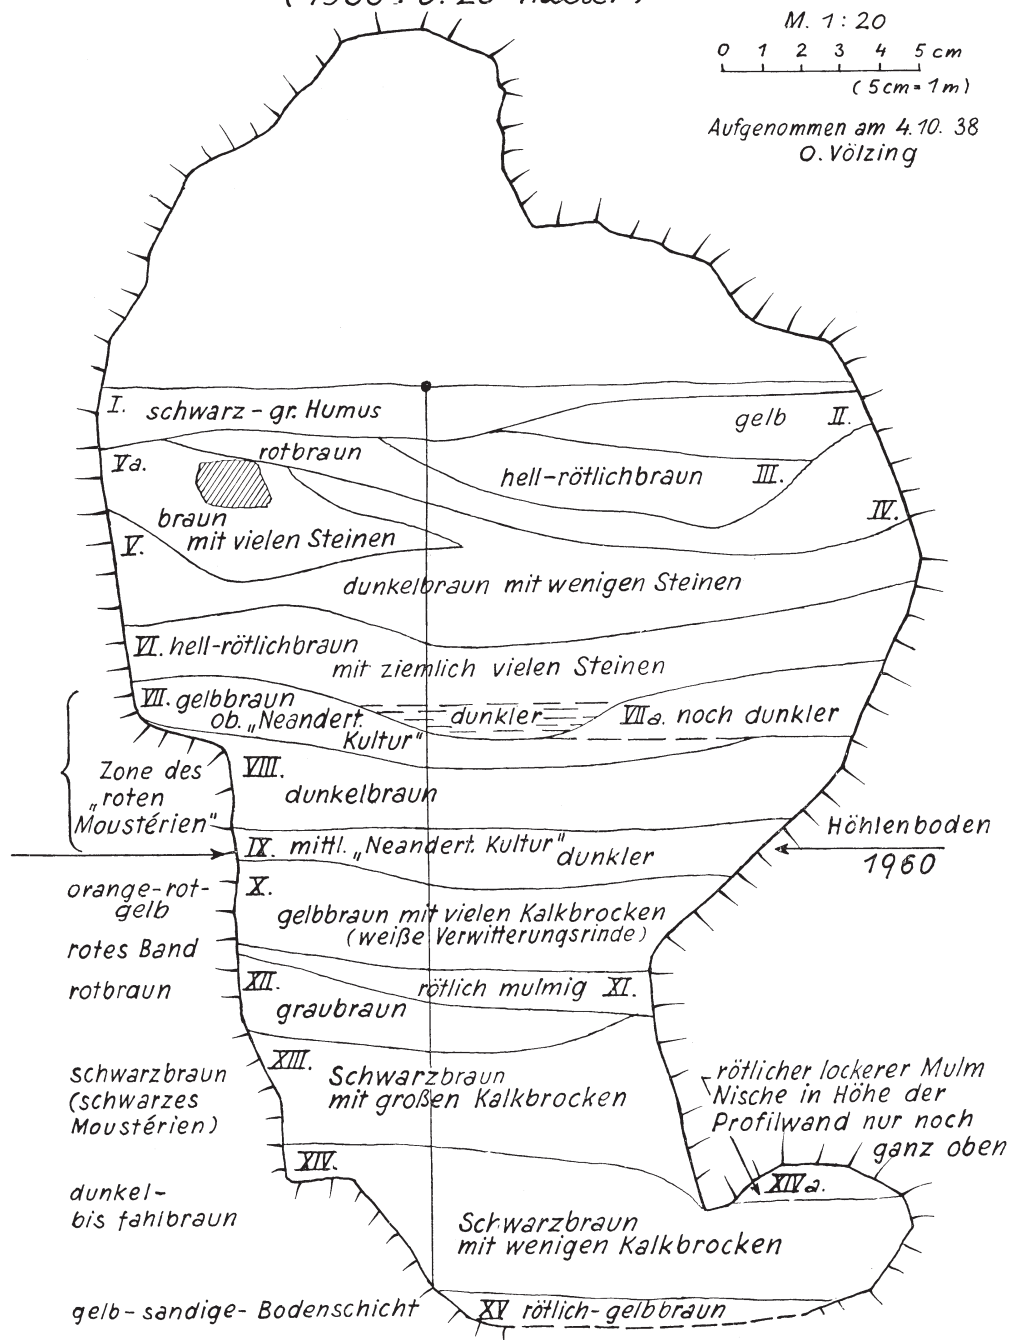 M. 1:20
0 1 2 3 4 5 cm
(5cm=1m)
Aufgenommen am 4.10.38
O. Völzing
I. schwarz-gr. Humus
gelb II.
Va.
rotbraun
hell-rötlichbraun III.
IV.
braun
mit vielen Steinen
V.
dunkelbraun mit wenigen Steinen
VI. hell-rötlichbraun
mit ziemlich vielen Steinen
VII. gelbbraun
ob. „Neandert.
Kultur"
dunkler
VIIa. noch dunkler
Zone des
„roten
Moustérien"
VIII.
dunkelbraun
IX. mittl. „Neandert. Kultur"
dunkler
Höhlenboden
1960
orange-rot-
gelb
X.
gelbbraun mit vielen Kalkbrocken
(weiße Verwitterungsrinde)
rotes Band
rotbraun
XII.
graubraun
rötlich mulmig XI.
XIII.
Schwarzbraun
mit großen Kalkbrocken
schwarzbraun
(schwarzes
Moustérien)
rötlicher lockerer Mulm
Nische in Höhe der
Profilwand nur noch
ganz oben
XIV.
XIVa.
dunkel-
bis fahlbraun
Schwarzbraun
mit wenigen Kalkbrocken
gelb-sandige-Bodenschicht
XV rötlich-gelbbraun